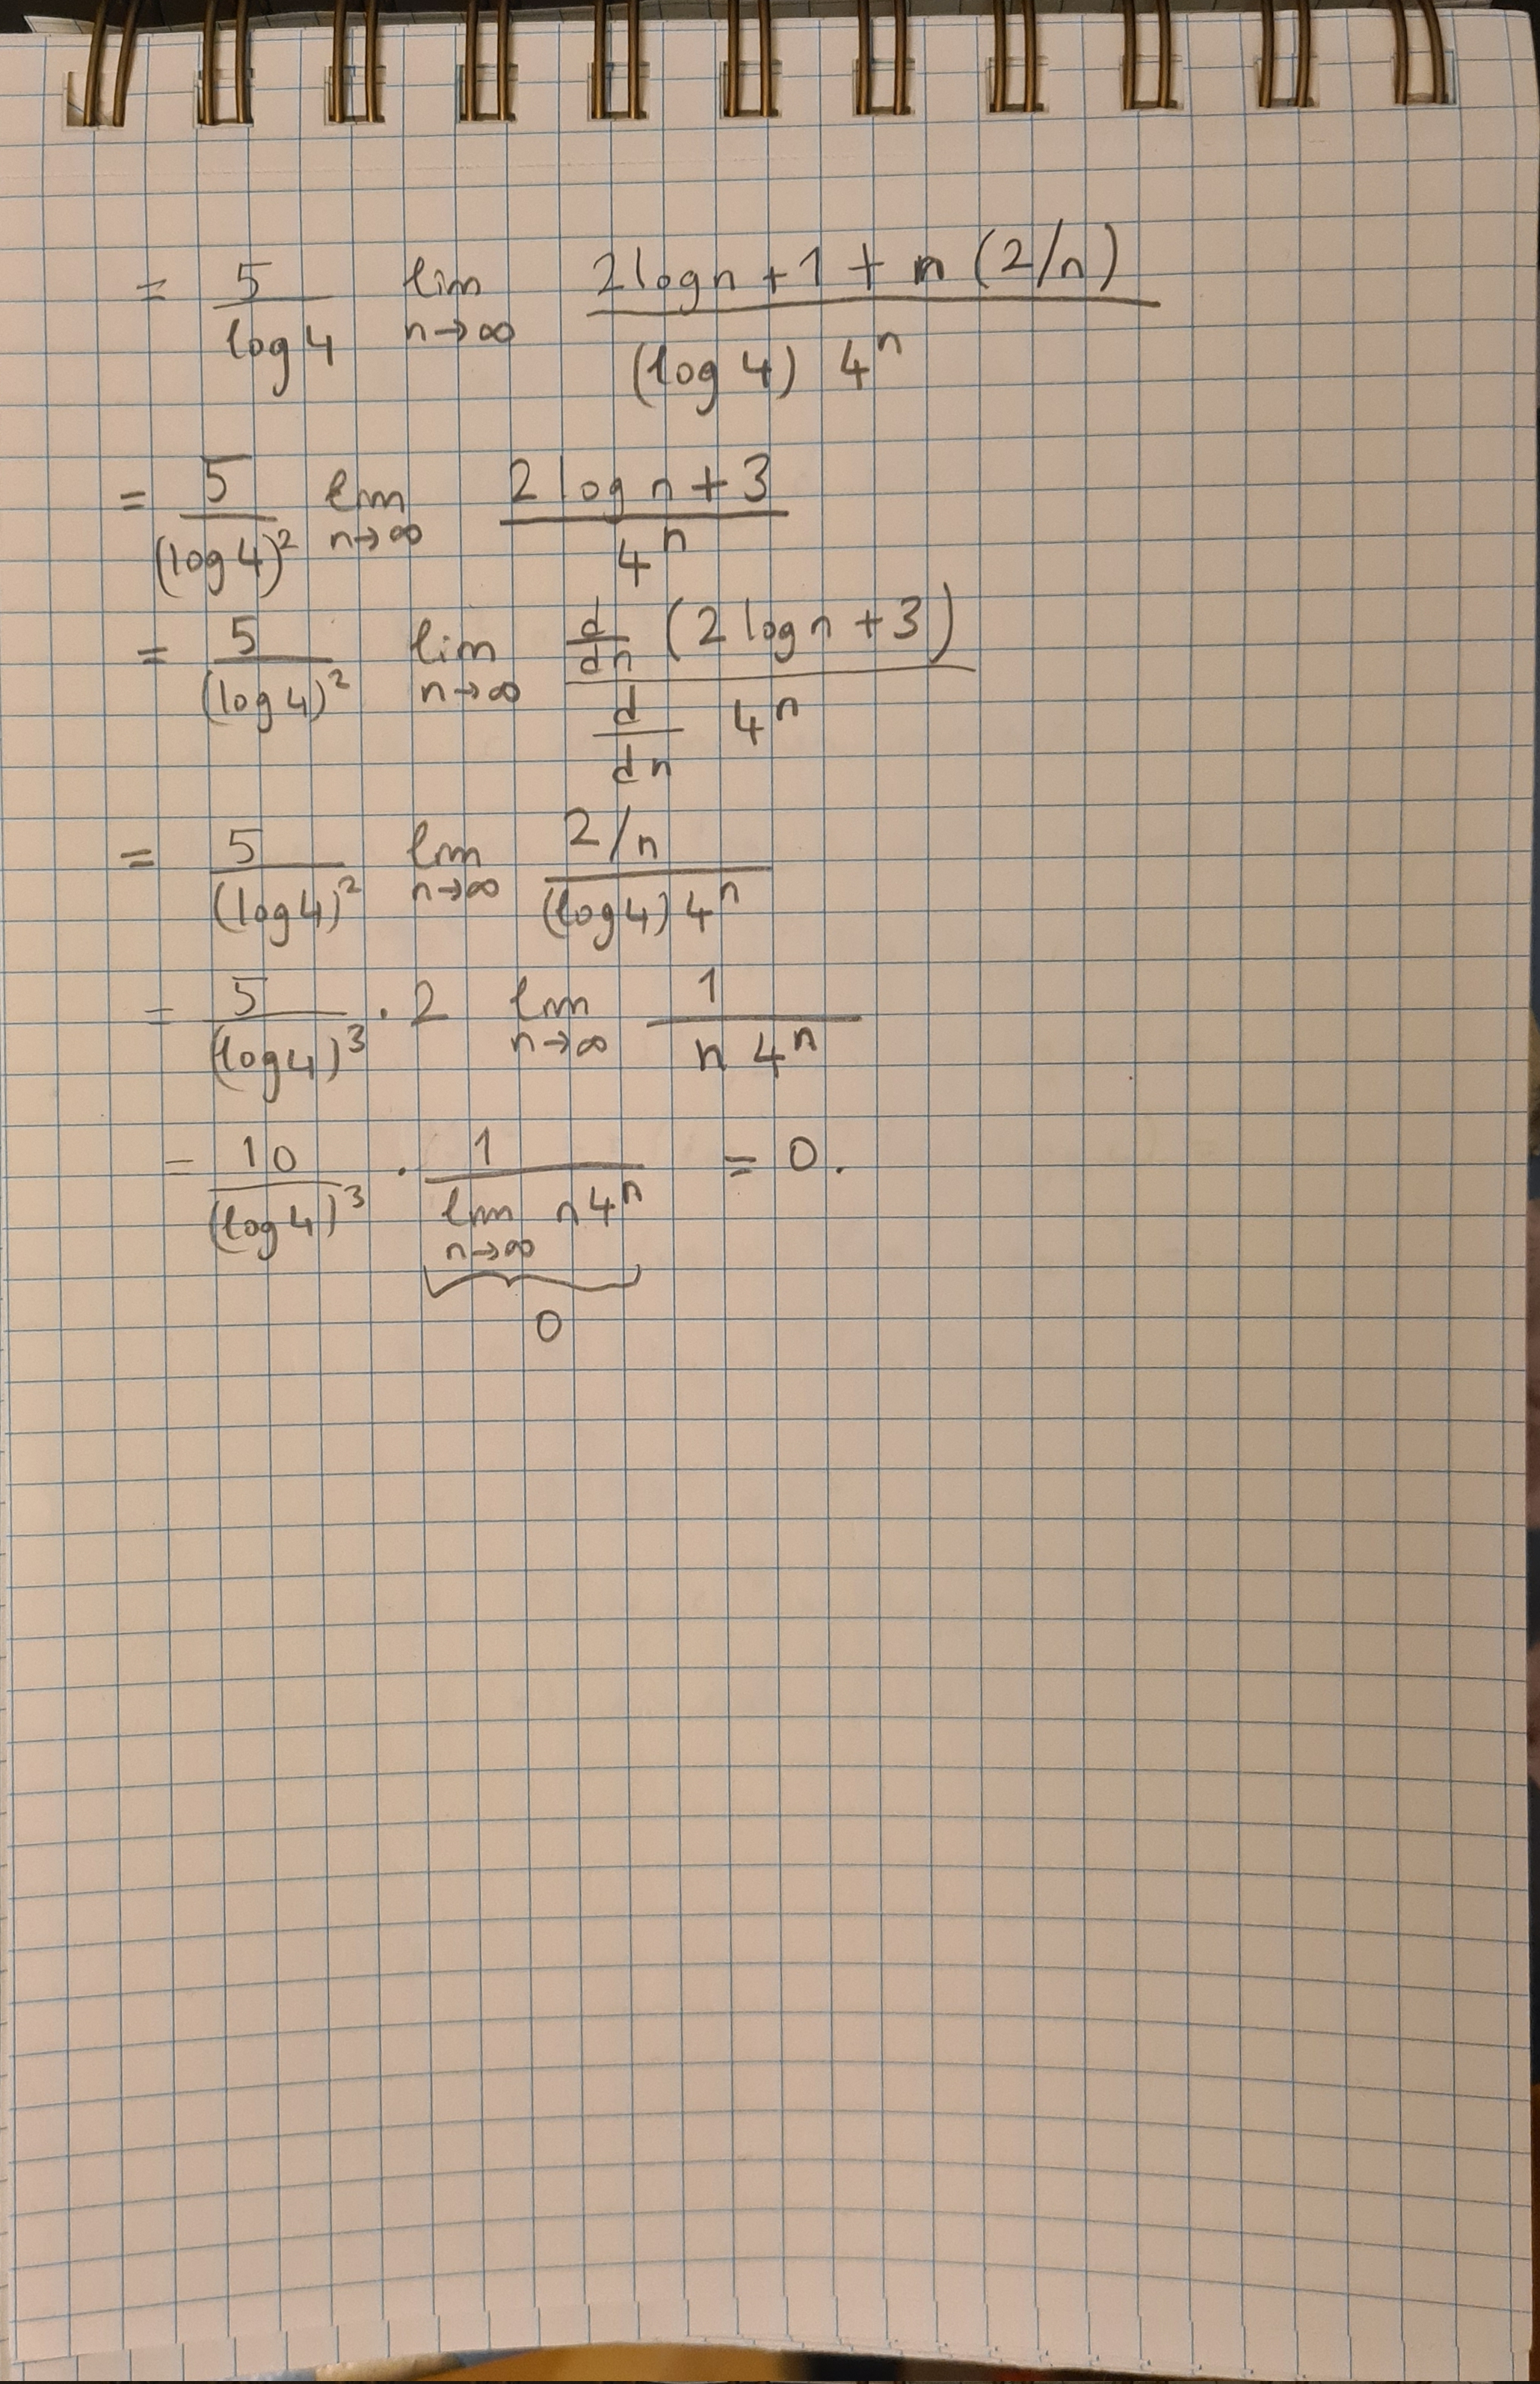 = 5/(log 4) lim n→∞ (2 log n + 1 + n (2/n)) / ((log 4) 4^n)
= 5/(log 4)^2 lim n→∞ (2 log n + 3) / 4^n
= 5/(log 4)^2 lim n→∞ (d/dn (2 log n + 3)) / (d/dn 4^n)
= 5/(log 4)^2 lim n→∞ (2/n) / ((log 4) 4^n)
= 5/(log 4)^3 · 2 lim n→∞ 1 / (n 4^n)
= 10/(log 4)^3 · 1 / (lim n→∞ n 4^n) = 0.
0